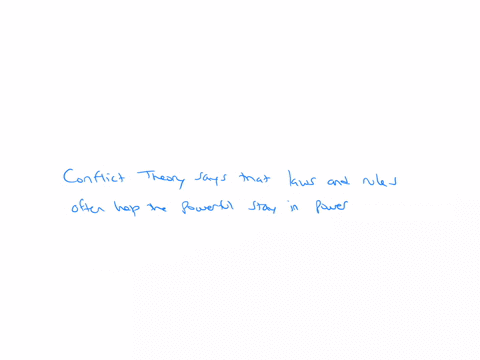 Conflict Theory says that laws and rules
often help the powerful stay in power